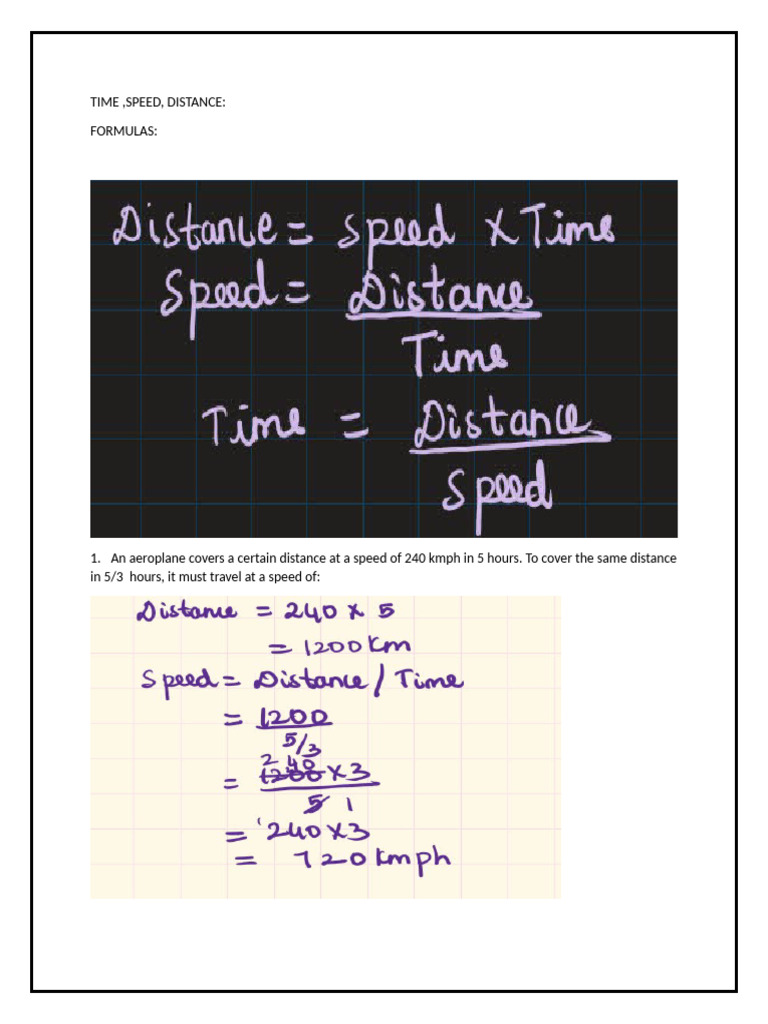 TIME ,SPEED, DISTANCE:
FORMULAS:
Distance = speed x Time
Speed = Distance
Time
Time = Distance
Speed
1. An aeroplane covers a certain distance at a speed of 240 kmph in 5 hours. To cover the same distance
in 5/3 hours, it must travel at a speed of:
Distance = 240 x 5
= 1200 km
Speed = Distance / Time
= 1200
5/3
2 40
= 1200 x 3
5 1
= 240 x 3
= 720 kmph